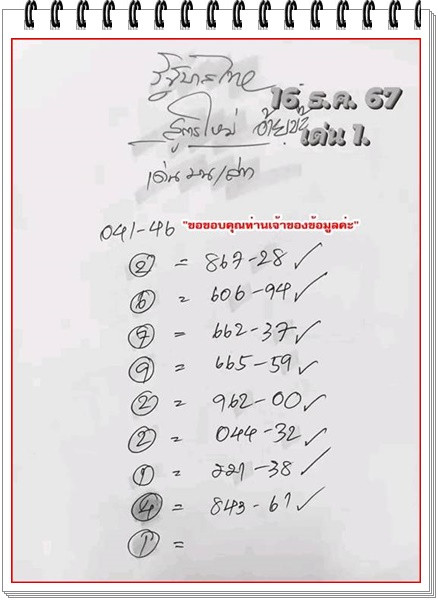 รัฐบาลไทย
16 ธ.ค. 67
สูตรใหม่
เด่น 1.
เด่น บน/ล่าง
041-46 "ขอขอบคุณท่านเจ้าของข้อมูลค่ะ"
2 = 867-28 ✓
6 = 606-94 ✓
7 = 662-37 ✓
9 = 665-59 ✓
2 = 962-00 ✓
2 = 044-32 ✓
1 = 221-38 ✓
4 = 843-61 ✓
1 =